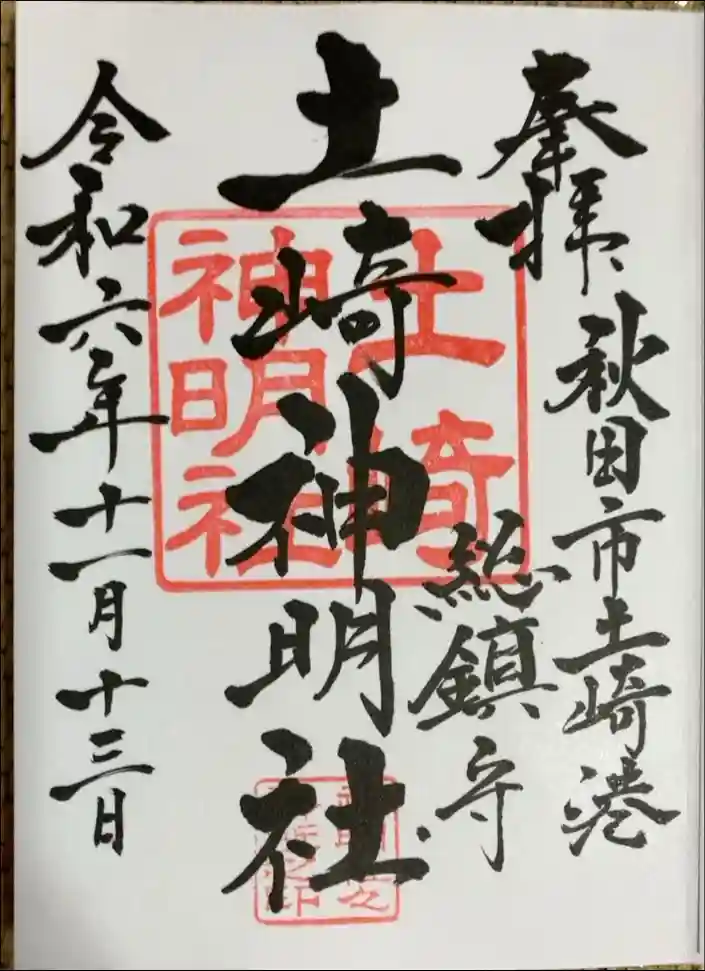 奉拝
秋田市土崎港
総鎮守
土崎神明社
土崎
神明社
令和六年十一月十三日